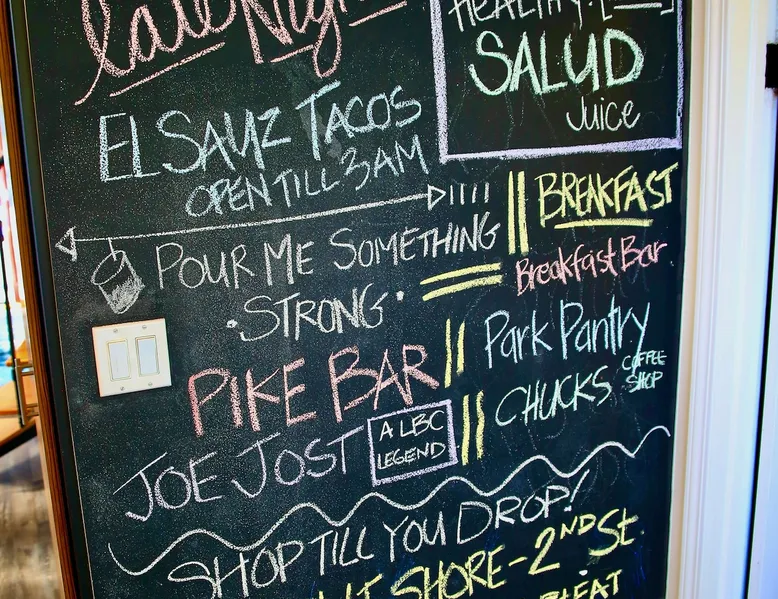 Late Night
EL SAUZ TACOS
OPEN TILL 3AM
POUR ME SOMETHING
STRONG
PIKE BAR
JOE JOST
A LBC
LEGEND
HEALTHY!
SALUD
Juice
BREAKFAST
Breakfast Bar
Park Pantry
CHUCKS
COFFEE
SHOP
SHOP TILL YOU DROP!
SHORE - 2ND St.